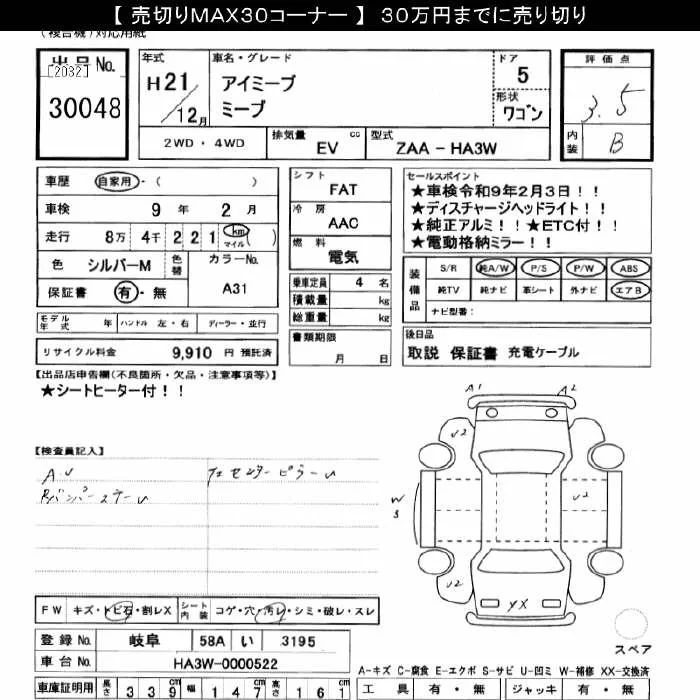 【 売切りMAX30コーナー 】 30万円までに売り切り
(複合機)対応用紙
出品No. [2032] 30048
年式 H21/12月
車名・グレード アイミーブ ミーブ
ドア 5
形状 ワゴン
評価点 3.5
内装 B
2WD・4WD 排気量 EV cc 型式 ZAA - HA3W
車歴 自家用・( )
車検 9年 2月
走行 8万 4千 2 2 1 km マイル ( )
色 シルバーM 色替 カラーNo. A31
保証書 有・無
モデル年式 年 ハンドル 左・右 ディーラー・並行
リサイクル料金 9,910 円 預託済
シフト FAT
冷房 AAC
燃料 電気
乗車定員 4 名
積載量 kg
総重量 kg
書類期限 月 日
セールスポイント
★車検令和9年2月3日!!
★ディスチャージヘッドライト!!
★純正アルミ!!★ETC付!!
★電動格納ミラー!!
装備品 S/R 純A/W P/S P/W ABS
純TV 純ナビ 革シート 外ナビ エアB
ナビ型番:
後日品
取説 保証書 充電ケーブル
【出品店申告欄(不良箇所・欠品・注意事項等)】
★シートヒーター付!!
【検査員記入】
A.U
A1 A2
U2
U2
U2
W
YX
スペア
FW キズ・トビ石・割レX シート内装 コゲ・穴・汚レ・シミ・破レ・スレ
登録No. 岐阜 58A い 3195
車台No. HA3W-0000522
車庫証明用 長さ 339cm 幅 147cm 高さ 161cm
A-キズ C-腐食 E-エクボ S-サビ U-凹ミ W-補修 XX-交換済
工具 有・無 ジャッキ 有・無